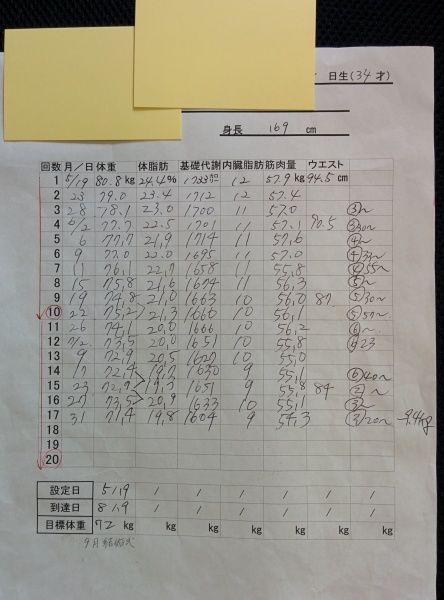 日生(34才)
身長 169 cm
回数 月/日 体重 体脂肪 基礎代謝 内臓脂肪 筋肉量 ウエスト
1 5/19 80.8kg 24.4% 1723 12 57.9kg 94.5cm
2 23 79.0 23.4 1712 12 57.4
3 28 78.1 23.0 1700 11 57.0 ③~
4 6/2 77.7 22.5 1701 11 57.1 90.5 ③30~
5 6 77.7 21.9 1714 11 57.6 ④~
6 9 77.0 22.0 1695 11 57.0
7 11 76.1 22.7 1658 11 55.8 ④55~
8 15 75.8 21.6 1674 11 56.3 ⑤~
9 19 74.8 21.0 1663 10 56.0 87 ⑤30~
10 22 75.2 21.3 1660 10 56.1
11 26 74.1 20.0 1666 10 56.2 ⑥~
12 7/2 73.5 20.0 1651 10 55.8
13 9 72.9 20.5 1627 10 55.0
14 17 72.4 19.7 1630 9 55.1 ⑥40~
15 23 72.7 1651 9 55.8 84 ②~
16 27 73.5 20.9 1633 10 55.1 ③~
17 31 71.4 19.8 1604 9 54.3 ③20~ -9.4kg
18
19
20
設定日 5/19 / / / / / /
到達日 8/19 / / / / / /
目標体重 72 kg kg kg kg kg kg kg
9月結婚式